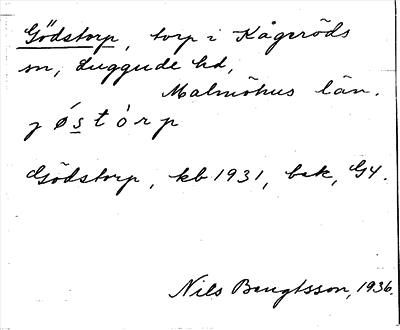 Gödstorp, torp i Kågeröds
sn, Luggude hd,
Malmöhus län.
jøstòrp
Gödstorp, kb 1931, bek, G4.
Nils Bengtsson, 1936.